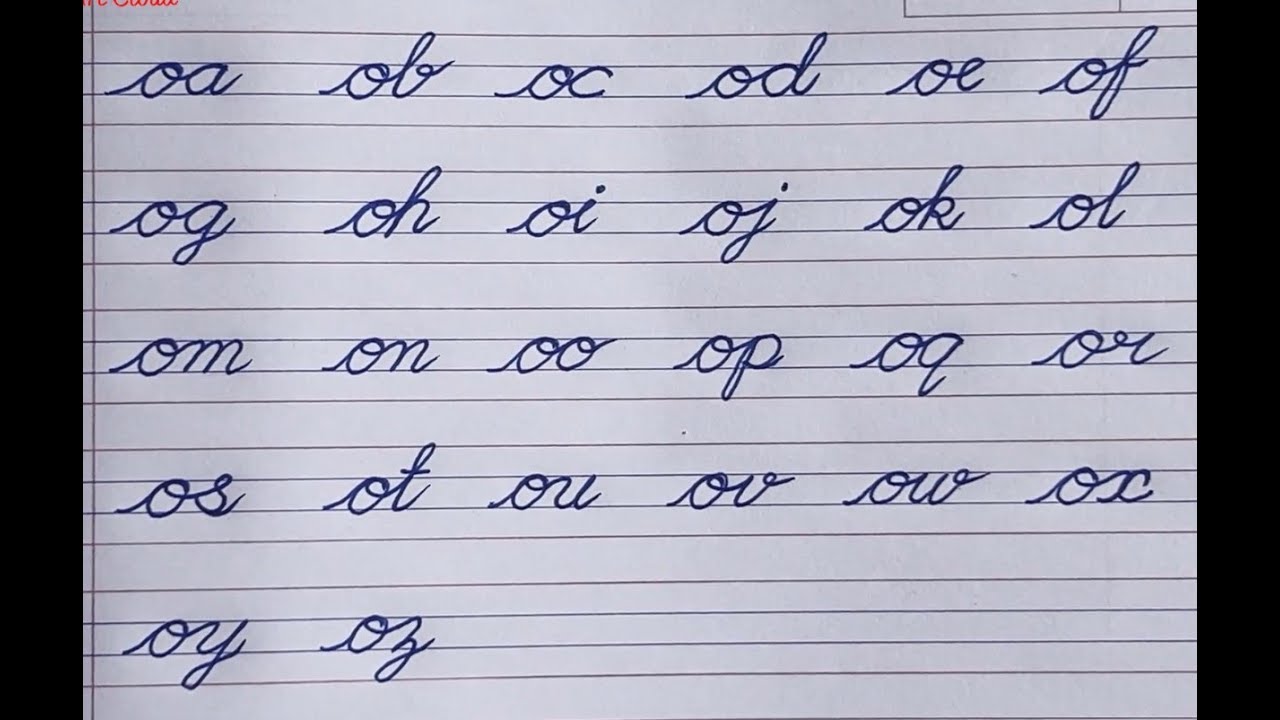 oa ob oc od oe of
og oh oi oj ok ol
om on oo op oq or
os ot ou ov ow ox
oy oz